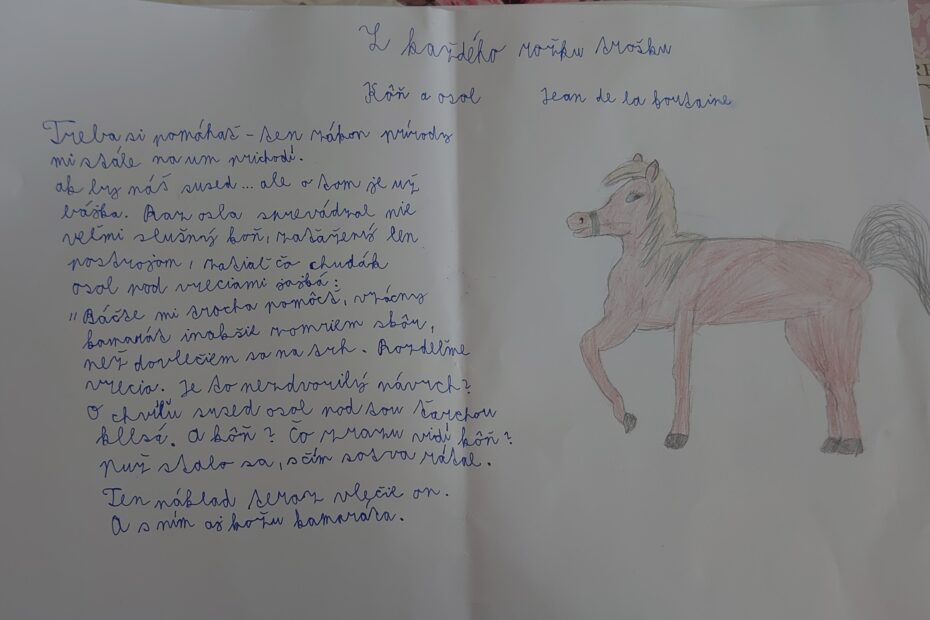 Z každého rožku trošku
Kôň a osol Jean de la Foutaine
Treba si pomáhať - ten zákon prírody
mi stále na um prichodí.
ak by náš sused... ale o tom je už
bájka. Raz osla sprevádzal nie
veľmi slušný kôň, zaťažený len
postrojom, zatiaľ čo chudák
osol pod vreciami jajká:
"Ráčte mi trocha pomôcť, vzácny
kamarát inakšie zomriem skôr,
než dovlečiem sa na trh. Rozdeľme
vrecia. Je to nezdvorilý návrh?
O chvíľu sused osol pod tou ťarchou
klesá. A kôň? Čo zrazu vidí kôň?
Nuž stalo sa, s čím sotva rátal.
Ten náklad teraz vlečie on.
A s ním aj kožu kamaráta.